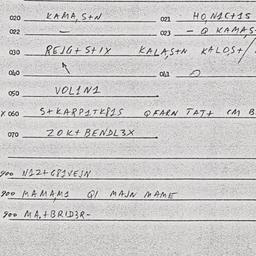 020 KAMA,S+N 021 HO,N1C+15
022 — 023 — Q KAMAS
030 REJG+S+IX KALA,S+N KALOS+/
040 041
050 VOL1N1
X 060 S+KARP1TKP1S QFARN TAT+ CM B
070 ZOK+ BENDL3X
900 N12+G81VEJN
900 MAMAM1 Q1 MAJN MAME
900 MA,+BRID3R-